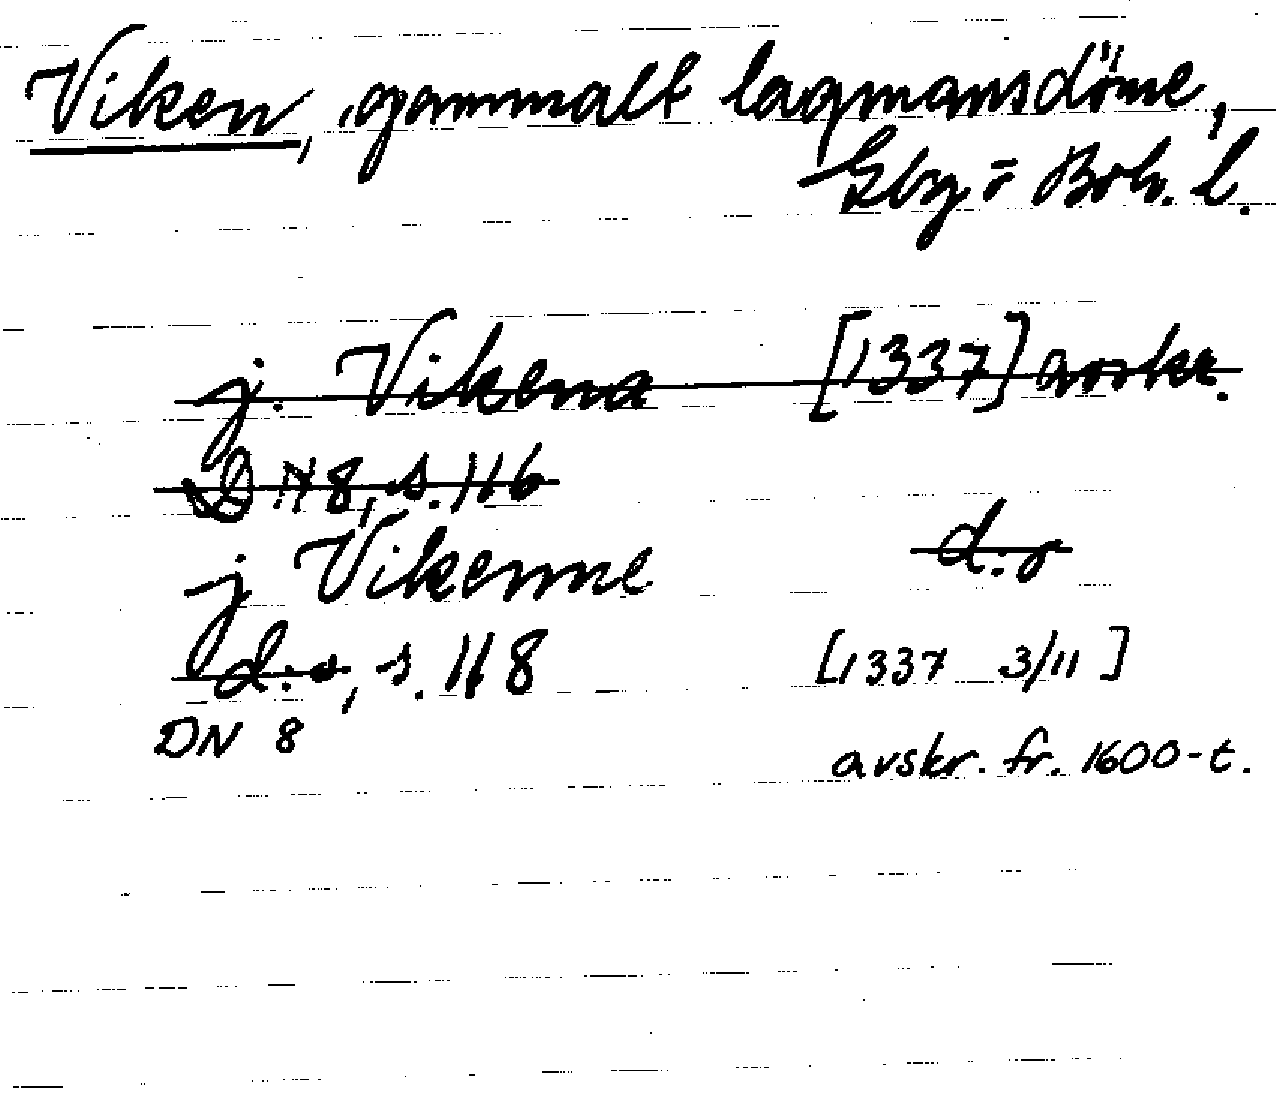 Viken, gammalt lagmansdöme,
Gbg = Boh. l.
j. Vikena [1337] avskr.
DN 8, s. 116
j Vikenne d:o
d:o, s. 118 [1337 3/11]
DN 8 avskr. fr. 1600-t.